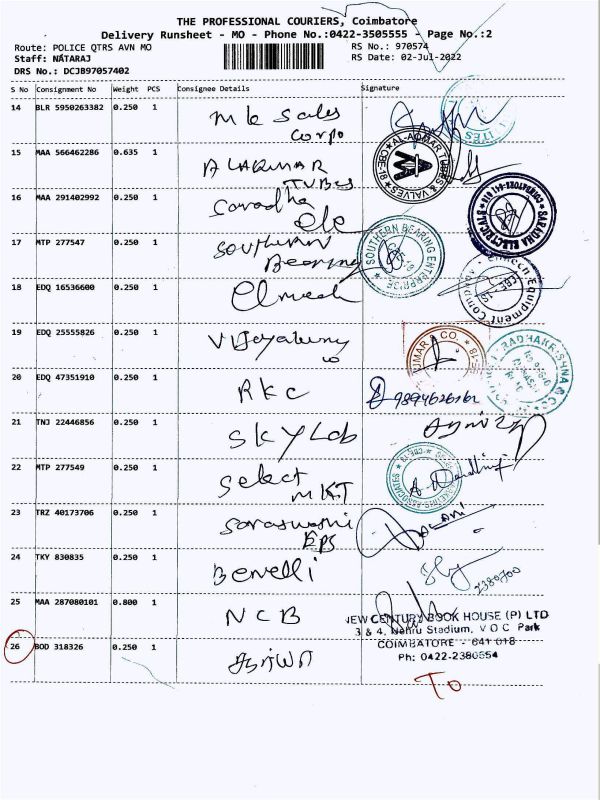 THE PROFESSIONAL COURIERS, Coimbatore
Delivery Runsheet - MO - Phone No.:0422-3505555 - Page No.:2
Route: POLICE QTRS AVN MO
RS No.: 970574
Staff: NATARAJ
RS Date: 02-Jul-2022
DRS No.: DCJB97057402
S No Consignment No Weight PCS Consignee Details Signature
14 BLR 5950263382 0.250 1 Mk Sales
Corpo
15 MAA 566462286 0.635 1 ALAKMAR
TUBES
AL-AQMAR TUBES & VALVES
16 MAA 291402992 0.250 1 Saradha
ele
SARADHA ELECTRICALS
17 MTP 277547 0.250 1 Southern
Bearing
SOUTHERN BEARING ENTERPRISE
18 EDQ 16536600 0.250 1
Emtech Equipment Company
19 EDQ 25555826 0.250 1
20 EDQ 47351910 0.250 1 RKC
RADHAKRISHNA & CO
21 TNJ 22446856 0.250 1 SKYLab
22 MTP 277549 0.250 1 Select
MKT
23 TRZ 40173706 0.250 1
24 TKY 830835 0.250 1 Benelli
2380700
25 MAA 287080101 0.800 1 NCB
NEW CENTURY BOOK HOUSE (P) LTD
3 & 4, Nehru Stadium, V O C Park
COIMBATORE - 641 018
Ph: 0422-2380554
26 BOD 318326 0.250 1
To